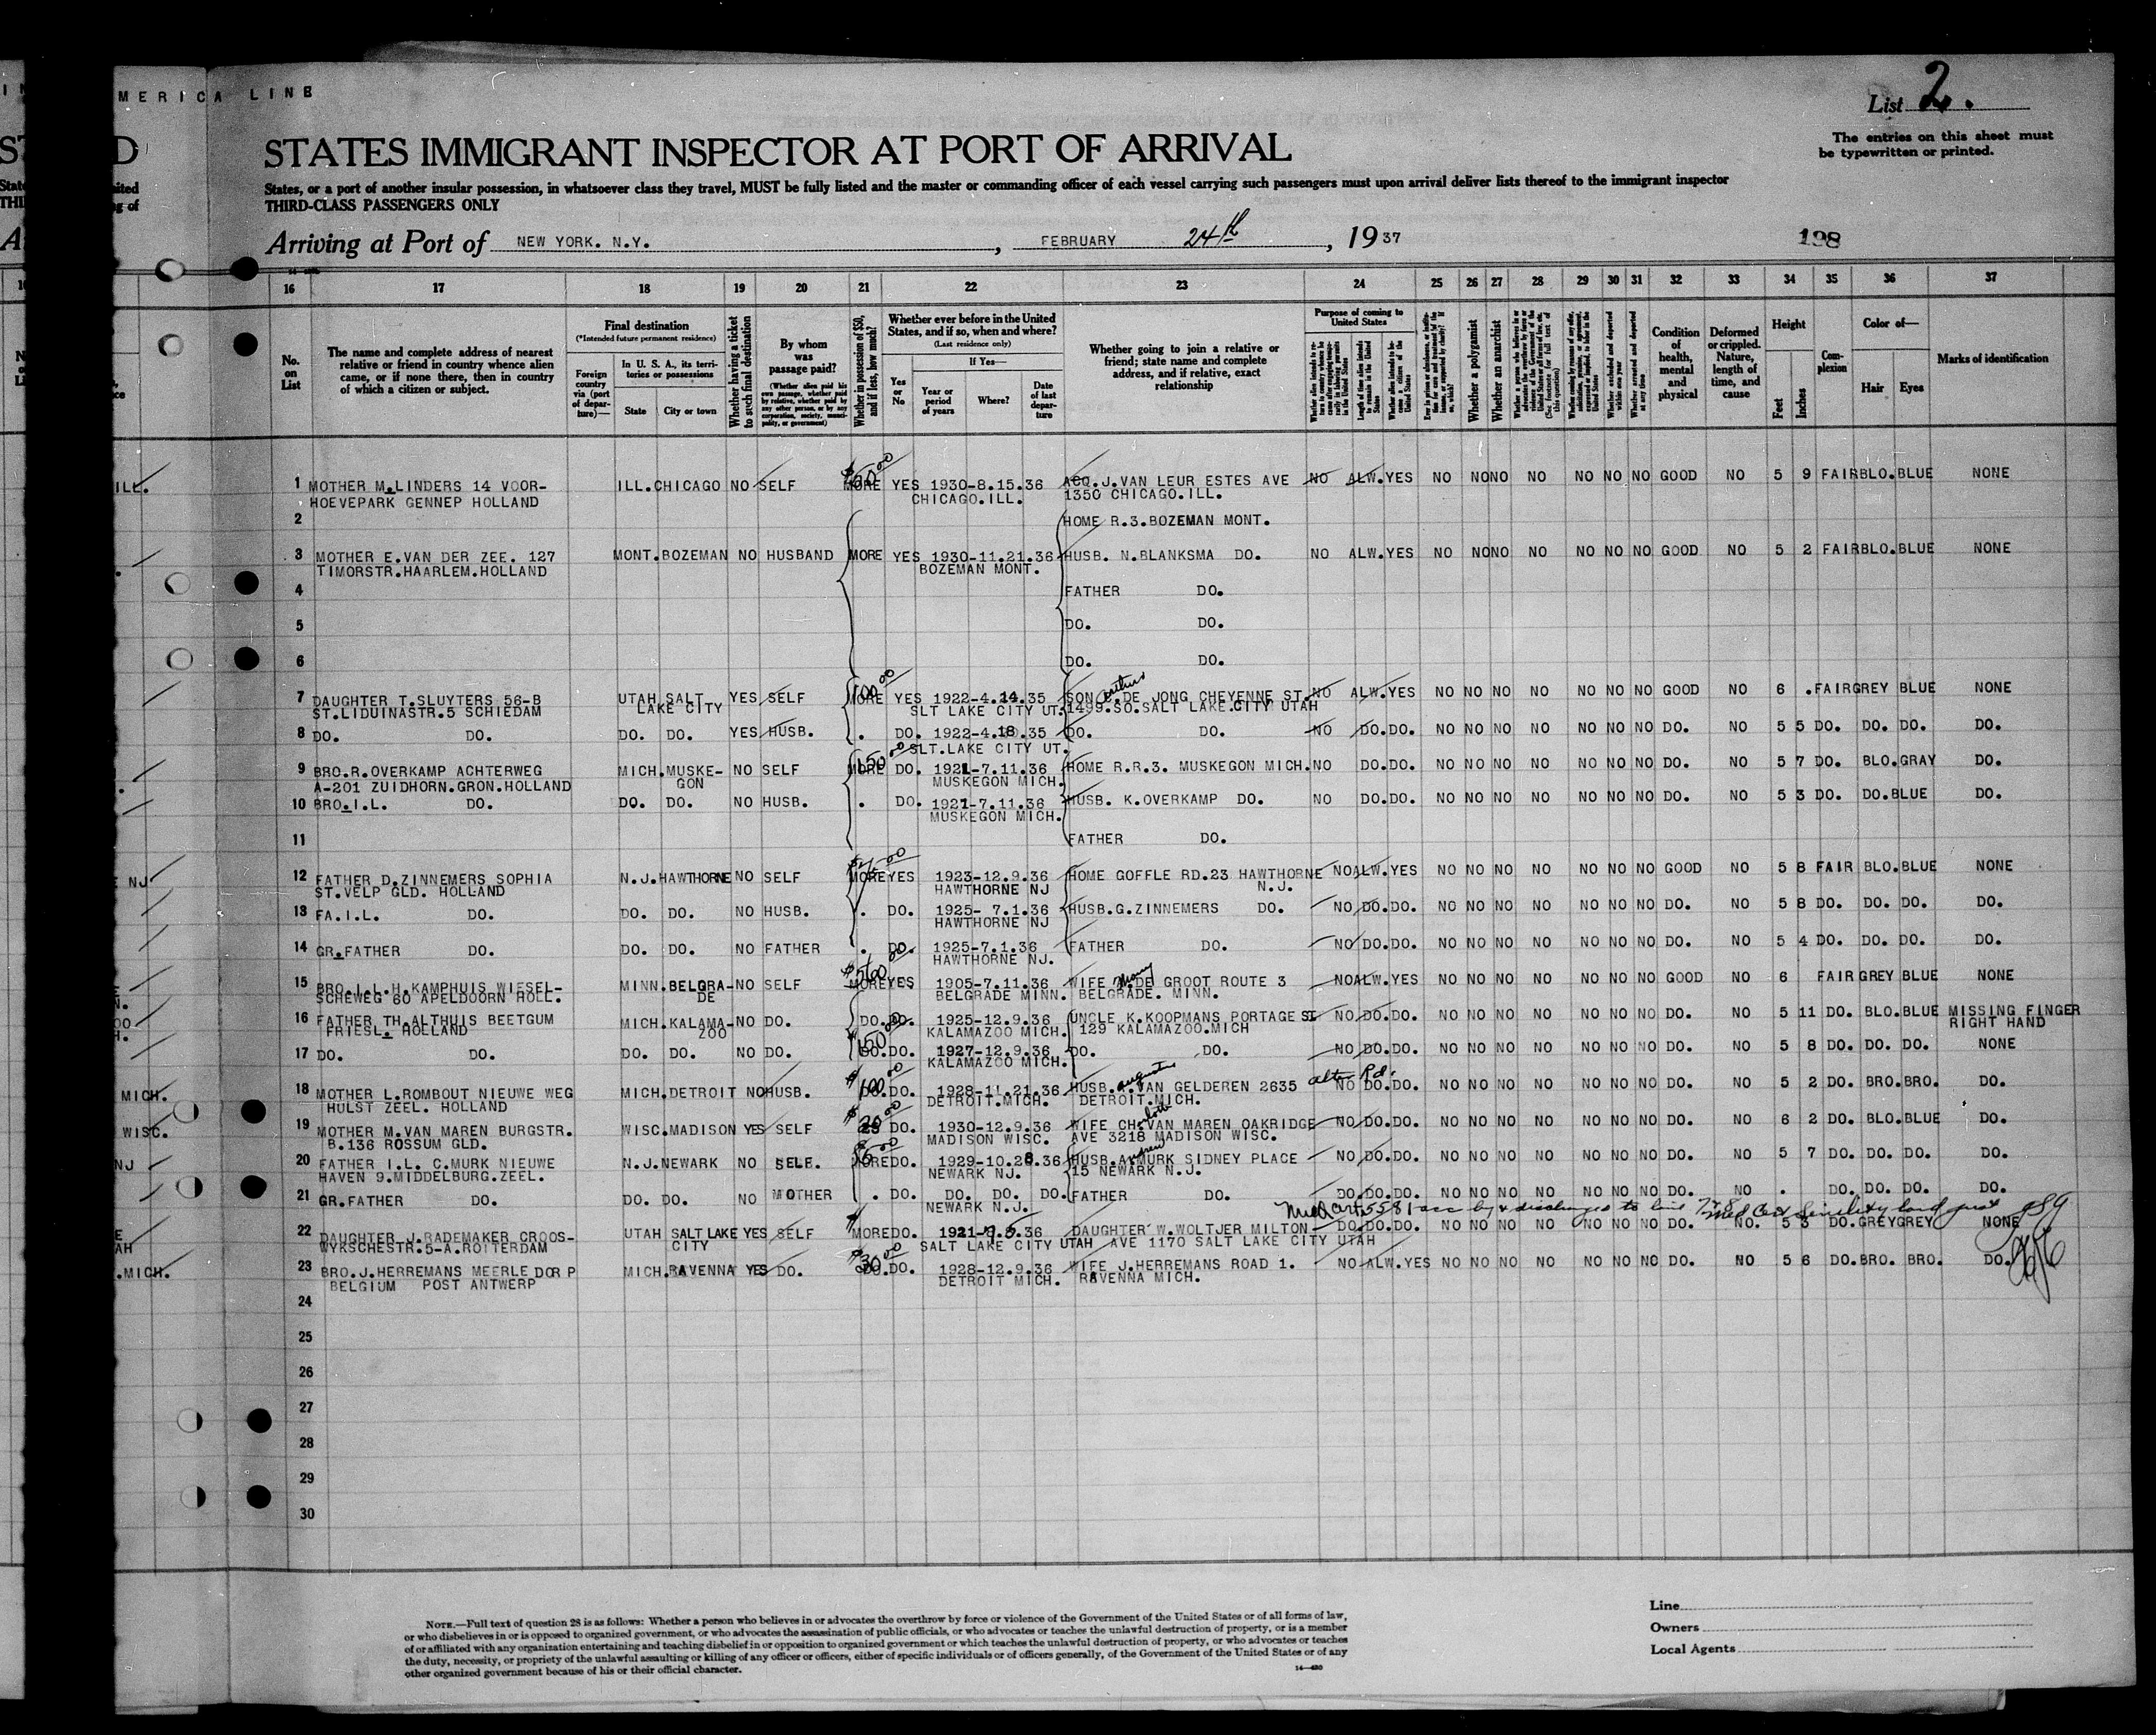 MERICA LINE
List 2.
STATES IMMIGRANT INSPECTOR AT PORT OF ARRIVAL
The entries on this sheet must
be typewritten or printed.
States, or a port of another insular possession, in whatsoever class they travel, MUST be fully listed and the master or commanding officer of each vessel carrying such passengers must upon arrival deliver lists thereof to the immigrant inspector
THIRD-CLASS PASSENGERS ONLY
Arriving at Port of NEW YORK. N.Y. , FEBRUARY 24th , 1937
198
16 17 18 19 20 21 22 23 24 25 26 27 28 29 30 31 32 33 34 35 36 37
No. on List
The name and complete address of nearest relative or friend in country whence alien came, or if none there, then in country of which a citizen or subject.
Final destination
(*Intended future permanent residence)
Foreign country via (port of departure)—
In U. S. A., its territories or possessions
State City or town
Whether having a ticket to such final destination
By whom was passage paid?
(Whether alien paid his own passage, whether paid by relative, whether paid by any other person, or by any corporation, society, municipality, or government)
Whether in possession of $50, and if less, how much?
Whether ever before in the United States, and if so, when and where?
(Last residence only)
Yes or No
If Yes—
Year or period of years
Where?
Date of last departure
Whether going to join a relative or friend; state name and complete address, and if relative, exact relationship
Purpose of coming to United States
Whether a polygamist
Whether an anarchist
Condition of health, mental and physical
Deformed or crippled. Nature, length of time, and cause
Height
Feet Inches
Complexion
Color of—
Hair Eyes
Marks of identification
ILL.
1 MOTHER M.LINDERS 14 VOOR- ILL. CHICAGO NO SELF MORE YES 1930-8.15.36 ACQ.J.VAN LEUR ESTES AVE NO ALW. YES NO NO NO NO NO NO NO GOOD NO 5 9 FAIR BLO. BLUE NONE
HOEVEPARK GENNEP HOLLAND CHICAGO.ILL. 1350 CHICAGO.ILL.
2 HOME R.3.BOZEMAN MONT.
3 MOTHER E.VAN DER ZEE. 127 MONT. BOZEMAN NO HUSBAND MORE YES 1930-11.21.36 HUSB. N.BLANKSMA DO. NO ALW. YES NO NO NO NO NO NO NO GOOD NO 5 2 FAIR BLO. BLUE NONE
TIMORSTR.HAARLEM.HOLLAND BOZEMAN MONT.
4 FATHER DO.
5 DO. DO.
6 DO. DO.
7 DAUGHTER T.SLUYTERS 56-B UTAH SALT YES SELF $100.00 MORE YES 1922-4.14.35 SON Arthur DE JONG CHEYENNE ST. NO ALW. YES NO NO NO NO NO NO NO GOOD NO 6 . FAIR GREY BLUE NONE
ST.LIDUINASTR.5 SCHIEDAM LAKE CITY SLT LAKE CITY UT. 1499.SO.SALT LAKE.CITY UTAH
8 DO. DO. DO. DO. YES HUSB. . DO. 1922-4.18.35 DO. DO. NO DO. DO. NO NO NO NO NO NO NO DO. NO 5 5 DO. DO. DO. DO.
SLT.LAKE CITY UT.
9 BRO.R.OVERKAMP ACHTERWEG MICH. MUSKE- NO SELF 150.00 MORE DO. 1921-7.11.36 HOME R.R.3. MUSKEGON MICH. NO DO. DO. NO NO NO NO NO NO NO DO. NO 5 7 DO. BLO. GRAY DO.
A-201 ZUIDHORN.GRON.HOLLAND GON MUSKEGON MICH.
10 BRO.I.L. DO. DO. DO. NO HUSB. . DO. 1921-7.11.36 HUSB. K.OVERKAMP DO. NO DO. DO. NO NO NO NO NO NO NO DO. NO 5 3 DO. DO. BLUE DO.
MUSKEGON MICH.
11 FATHER DO.
NJ
12 FATHER D.ZINNEMERS SOPHIA N.J. HAWTHORNE NO SELF MORE YES 1923-12.9.36 HOME GOFFLE RD.23 HAWTHORNE NO ALW. YES NO NO NO NO NO NO NO GOOD NO 5 8 FAIR BLO. BLUE NONE
ST.VELP GLD. HOLLAND HAWTHORNE NJ N.J.
13 FA.I.L. DO. DO. DO. NO HUSB. . DO. 1925- 7.1.36 HUSB.G.ZINNEMERS DO. NO DO. DO. NO NO NO NO NO NO NO DO. NO 5 8 DO. DO. DO. DO.
HAWTHORNE NJ
14 GR.FATHER DO. DO. DO. NO FATHER . DO. 1925-7.1.36 FATHER DO. NO DO. DO. NO NO NO NO NO NO NO DO. NO 5 4 DO. DO. DO. DO.
HAWTHORNE NJ.
15 BRO.I.L.H.KAMPHUIS WIESEL- MINN. BELGRA- NO SELF $500.00 MORE YES 1905-7.11.36 WIFE M.DE GROOT ROUTE 3 NO ALW. YES NO NO NO NO NO NO NO GOOD NO 6 FAIR GREY BLUE NONE
SCHEWEG 60 APELDOORN HOLL. DE BELGRADE MINN. BELGRADE. MINN.
16 FATHER TH.ALTHUIS BEETGUM MICH. KALAMA- NO DO. DO. DO. 1925-12.9.36 UNCLE K.KOOPMANS PORTAGE ST NO DO. DO. NO NO NO NO NO NO NO DO. NO 5 11 DO. BLO. BLUE MISSING FINGER
FRIESL. HOLLAND ZOO KALAMAZOO MICH. 129 KALAMAZOO.MICH RIGHT HAND
17 DO. DO. DO. DO. NO DO. 150.00 DO. DO. 1927-12.9.36 DO. DO. NO DO. DO. NO NO NO NO NO NO NO DO. NO 5 8 DO. DO. DO. NONE
KALAMAZOO MICH.
MICH.
18 MOTHER L.ROMBOUT NIEUWE WEG MICH. DETROIT NO HUSB. $100.00 DO. DO. 1928-11.21.36 HUSB. August VAN GELDEREN 2635 alter Rd. NO DO. DO. NO NO NO NO NO NO NO DO. NO 5 2 DO. BRO. BRO. DO.
HULST ZEEL. HOLLAND DETROIT.MICH. DETROIT.MICH.
WISC.
19 MOTHER M.VAN MAREN BURGSTR. WISC. MADISON YES SELF $30.00 DO. 1930-12.9.36 WIFE CH. VAN MAREN OAKRIDGE NO DO. DO. NO NO NO NO NO NO NO DO. NO 6 2 DO. BLO. BLUE DO.
B.136 ROSSUM GLD. MADISON WISC. AVE 3218 MADISON WISC.
NJ
20 FATHER I.L. C.MURK NIEUWE N.J. NEWARK NO SELF. MORE DO. 1929-10.28.36 HUSB.A.MURK SIDNEY PLACE NO DO. DO. NO NO NO NO NO NO NO DO. NO 5 7 DO. DO. DO. DO.
HAVEN 9.MIDDELBURG.ZEEL. NEWARK NJ. 15 NEWARK N.J.
21 GR.FATHER DO. DO. DO. NO MOTHER . DO. DO. DO. DO. FATHER DO. DO. DO. DO. NO NO NO NO NO NO NO DO. NO . DO. DO. DO. DO.
NEWARK N.J.
22 DAUGHTER J.RADEMAKER CROOS- UTAH SALT LAKE YES SELF MORE DO. 1921-9.5.36 DAUGHTER W.WOLTJER MILTON DO. DO. DO. NO NO NO NO NO NO NO DO. NO. 5 3 DO. GREY GREY NONE
WYKSCHESTR.5-A.ROTTERDAM CITY SALT LAKE CITY UTAH AVE 1170 SALT LAKE CITY UTAH
.MICH.
23 BRO.J.HERREMANS MEERLE DORP MICH. RAVENNA YES DO. $30.00 DO. 1928-12.9.36 WIFE J.HERREMANS ROAD 1. NO ALW. YES NO NO NO NO NO NO NO DO. NO 5 6 DO. BRO. BRO. DO.
BELGIUM POST ANTWERP DETROIT MICH. RAVENNA MICH.
24
25
26
27
28
29
30
NOTE.—Full text of question 28 is as follows: Whether a person who believes in or advocates the overthrow by force or violence of the Government of the United States or of all forms of law,
or who disbelieves in or is opposed to organized government, or who advocates the assassination of public officials, or who advocates or teaches the unlawful destruction of property, or is a member
of or affiliated with any organization entertaining and teaching disbelief in or opposition to organized government or which teaches the unlawful destruction of property, or who advocates or teaches
the duty, necessity, or propriety of the unlawful assaulting or killing of any officer or officers, either of specific individuals or of officers generally, of the Government of the United States or of any
other organized government because of his or their official character.
Line
Owners
Local Agents